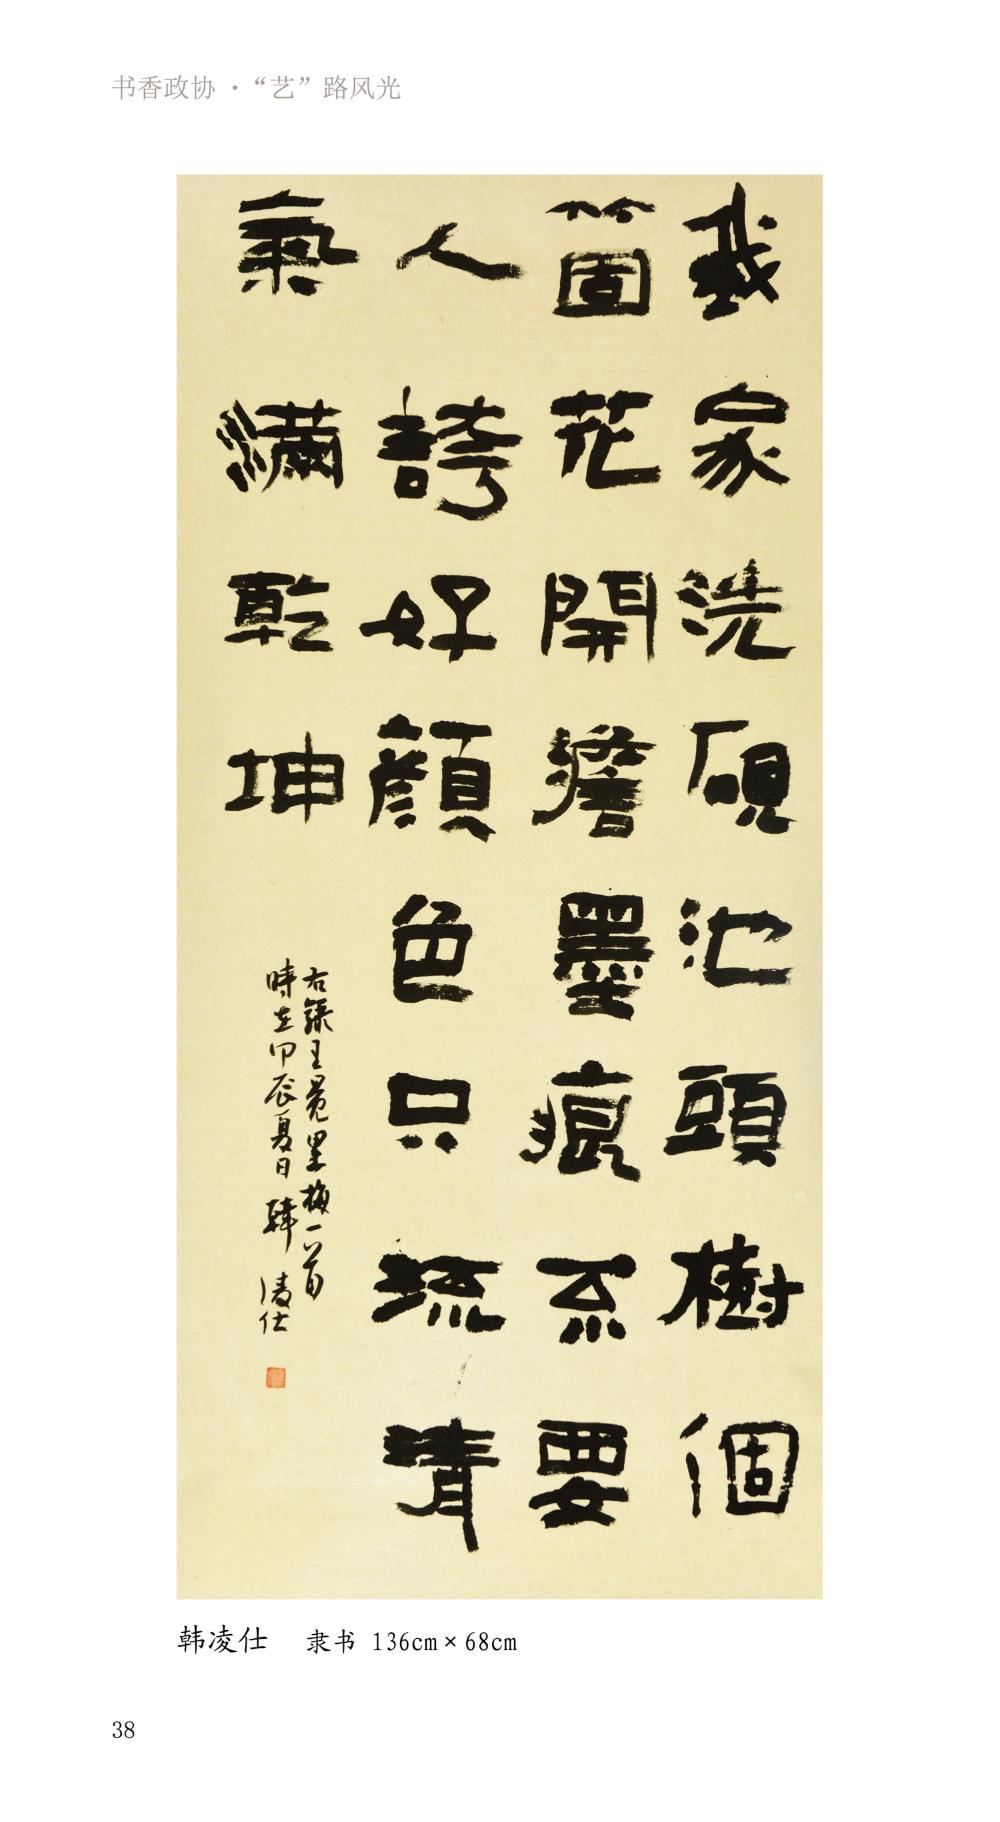 书香政协·“艺”路风光
我家洗硯池頭樹個
箇花開澹墨痕不要
人誇好顏色只流清
氣滿乾坤
右錄王冕墨梅一首
時在甲辰夏日 韓凌仕
韩凌仕 隶书 136cm×68cm
38